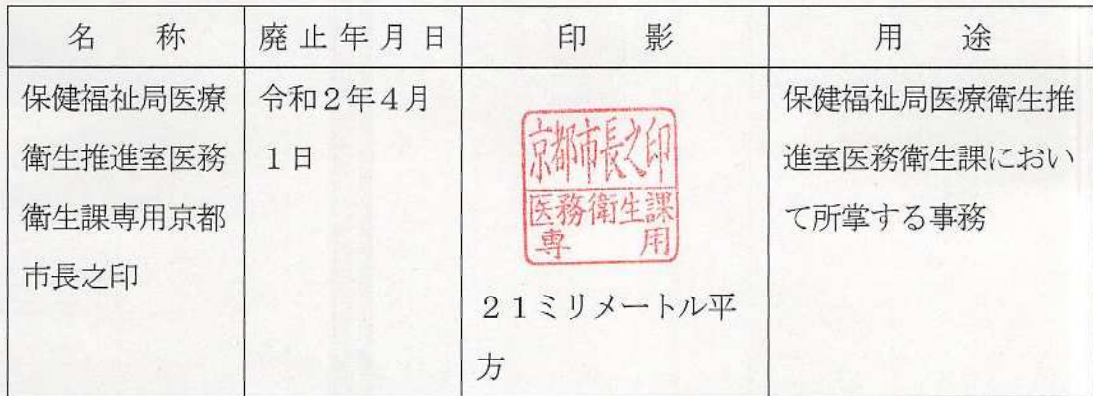 名　称
廃止年月日
印　影
用　途
保健福祉局医療
衛生推進室医務
衛生課専用京都
市長之印
令和2年4月
1日
京都市長之印
医務衛生課
専用
21ミリメートル平
方
保健福祉局医療衛生推
進室医務衛生課におい
て所掌する事務